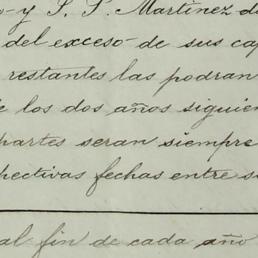 y S. S. Martinez d
del exceso de sus ca
restantes las podran
los dos años siguien
partes seran siempre
pectivas fechas entre s
al fin de cada año